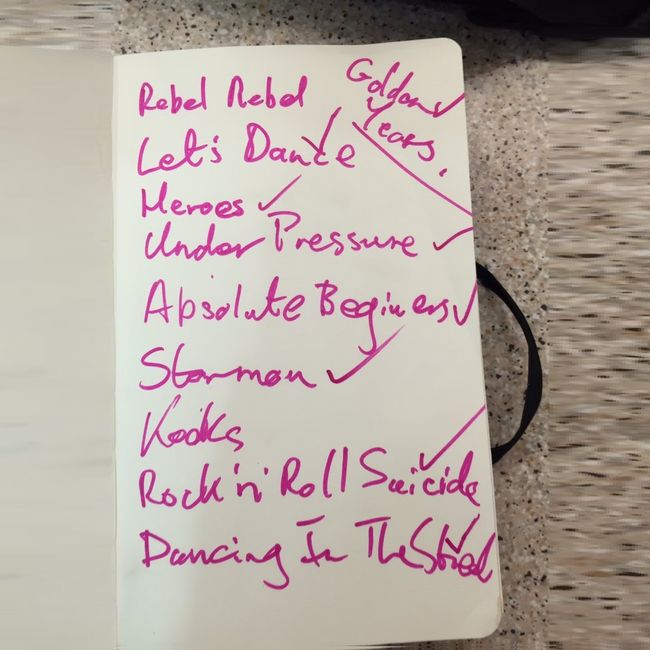 Rebel Rebel
Golden
Years.
Let's Dance
Heroes
Under Pressure
Absolute Beginers
Starman
Kooks
Rock 'n' Roll Suicide
Dancing In The Street